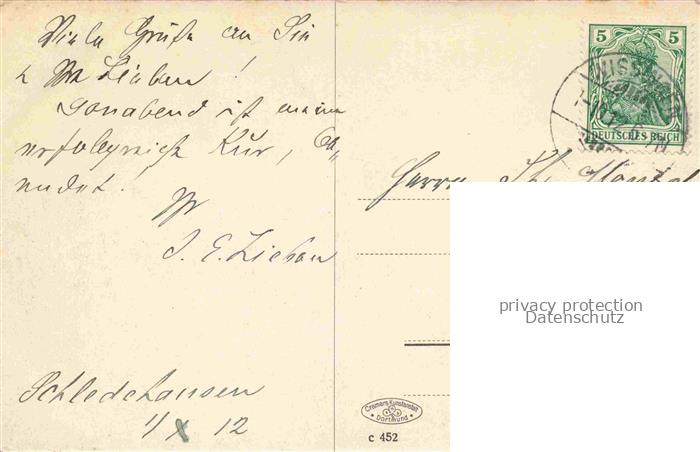 Viele Grüße an Sie
& Ihr Lieben!
Sonabend ist meine
erfolgreiche Kur, be-
endet!
Ihr
J. E.
Schledehausen
11/X 12
5 5
DEUTSCHES REICH
Herrn
privacy protection
Datenschutz
Cramers Kunstanstalt
Dortmund
c 452